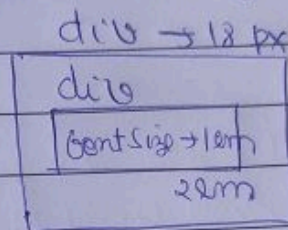 div → 18 px
div
font size → 1em
2em